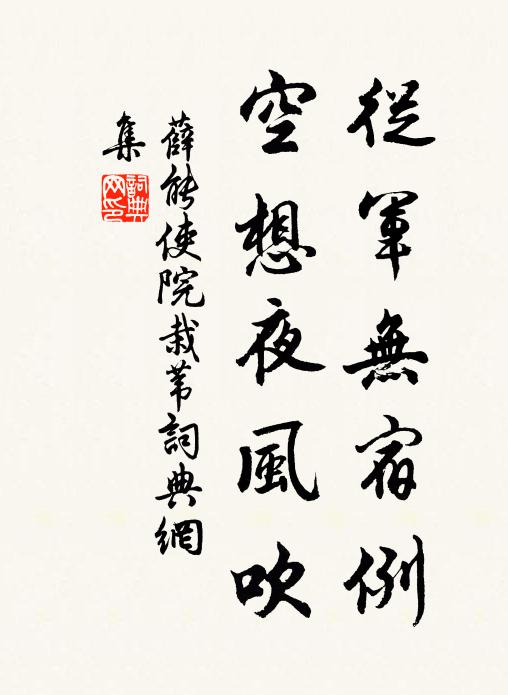 從軍無宿例
空想夜風吹
薛能使院栽苇詞典網
集
詞典
网印